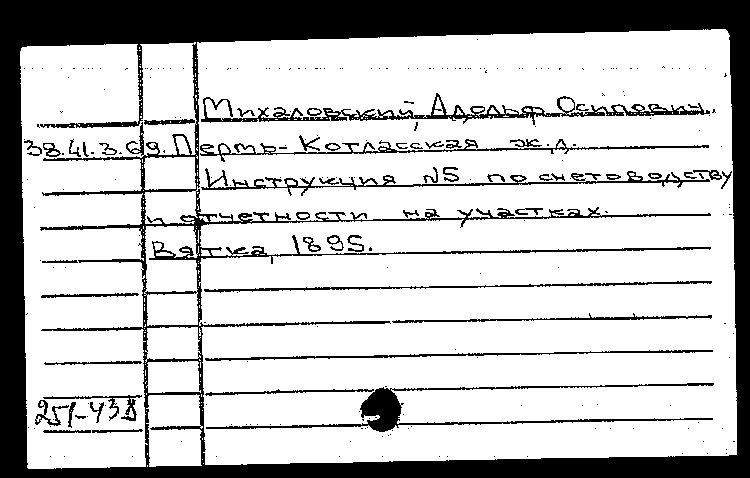 Михаловский, Адольф Осипович.
38.41.3.69. Пермь-Котласская ж.д.
Инструкция №5 по счетоводству
и отчетности на участках.
Вятка, 1895.
251-438